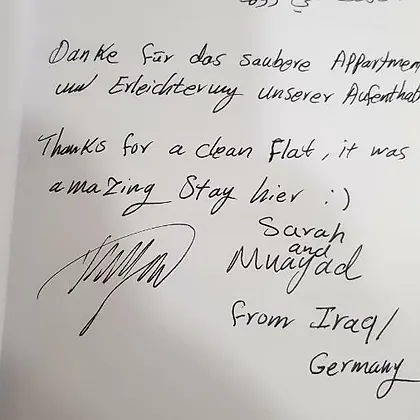 Danke für das saubere Appartmen
und Erleichterung unserer Aufenthat
Thanks for a clean flat, it was
amazing Stay hier :)
Sarah
and
Muayad
from Iraq/
Germany